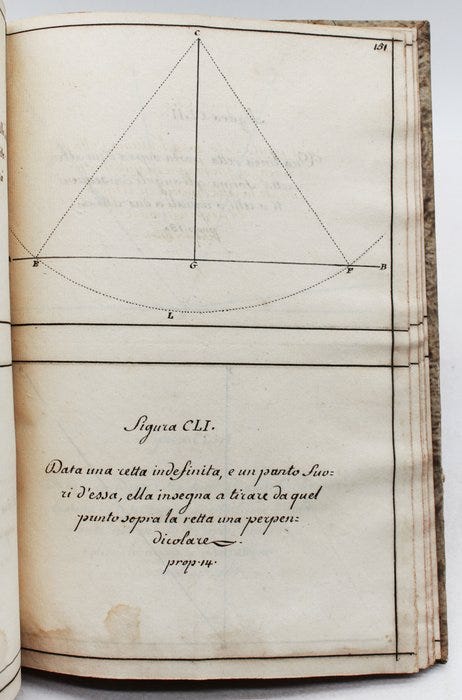 C
151
E
G
F
B
L
Figura CLI.
Data una retta indefinita, e un punto fuo=
ri d'essa, ella insegna a tirare da quel
punto sopra la retta una perpen=
dicolare.
prop. 14.